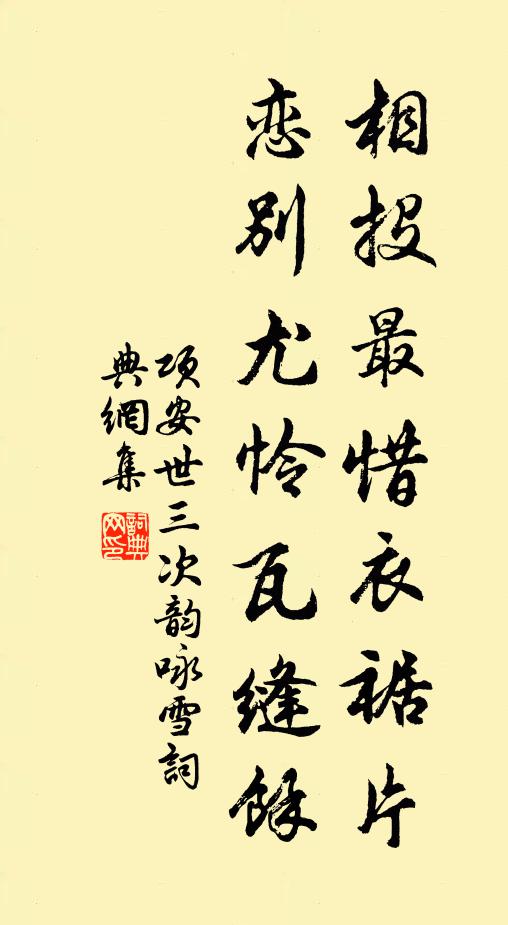 相投最惜衣裾片
恋别尤怜瓦缝餘
项安世三次韵咏雪詞
典網集
詞典
网印